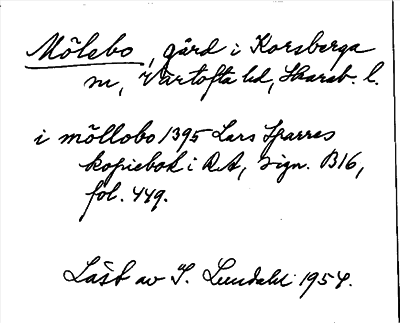 Mölebo, gård i Korsberga
sn, Vartofta hd, Skarab. l.
i möllobo 1395 Lars Sparres
kopiebok i RA, sign. B16,
fol. 449.
Läst av I. Lundahl 1954.